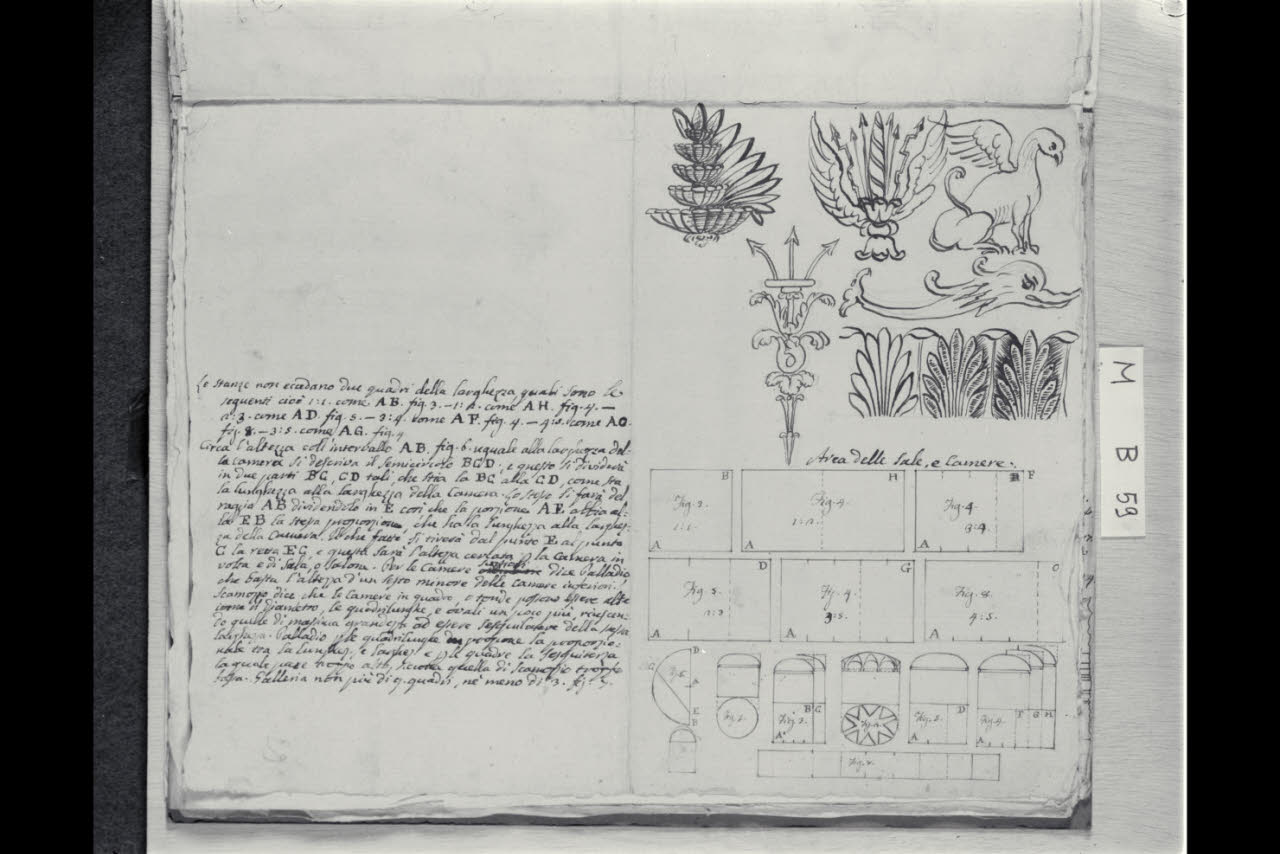 Le stanze non eccedano due quadri della larghezza quali sono le
seguenti cioè 1:1. come AB. fig. 3. – 1:2. come AH. fig. 4. –
2:3. come AD. fig. 5. – 3:4. come AF. fig. 4. – 4:5. come AO.
fig. 8. – 3:5. come AG. fig. 4
Circa l'altezza coll'intervallo AB. fig. 6. uguale alla larghezza del-
la camera si descriva il semicircolo BCD. e questo si dividerà
in due parti BC, CD tali, che stia la BC alla CD, come sta
la lunghezza alla larghezza della Camera. Lo stesso si farà del
raggio AB dividendolo in E così che la porzione AE abbia al-
la EB la stessa proporzione, che ha la lunghezza alla larghez-
za della Camera. Il che fatto si tirerà dal punto E al punto
C la retta EC, e questa sarà l'altezza cercata p la Camera in
volta e di Sala, o Salone. Per le Camere dice Palladio
che basta l'altezza d'un sesto minore delle camere inferiori.
Scamozio dice che le Camere in quadro, o tonde possono essere alte
come il diametro, le quadrilunghe, e ovali un poco più, riescen-
do quelle di massima grandezza ad essere della stessa
larghezza. Palladio p le quadrilunghe propone la proporzio-
nale tra la lunghez. e larghez. e p le quadre la sesquiterza
la quale pare troppo alta, siccome quella di Scamozio troppo
bassa. Galleria non più di 9. quadri, nè meno di 3. fig. 7.
Area delle Sale, e Camere.
B H F
Fig. 3. Fig. 4. Fig. 4
1:1. 1:2. 3:4
A A A
D G O
Fig. 5. Fig. 4 Fig. 8.
2:3 3:5. 4:5.
A A A
D
C
A
E
B
Fig. 2. Fig. 3. B C Fig. 5. D Fig. 4. F G H
A A
Fig. 7.
M B 59